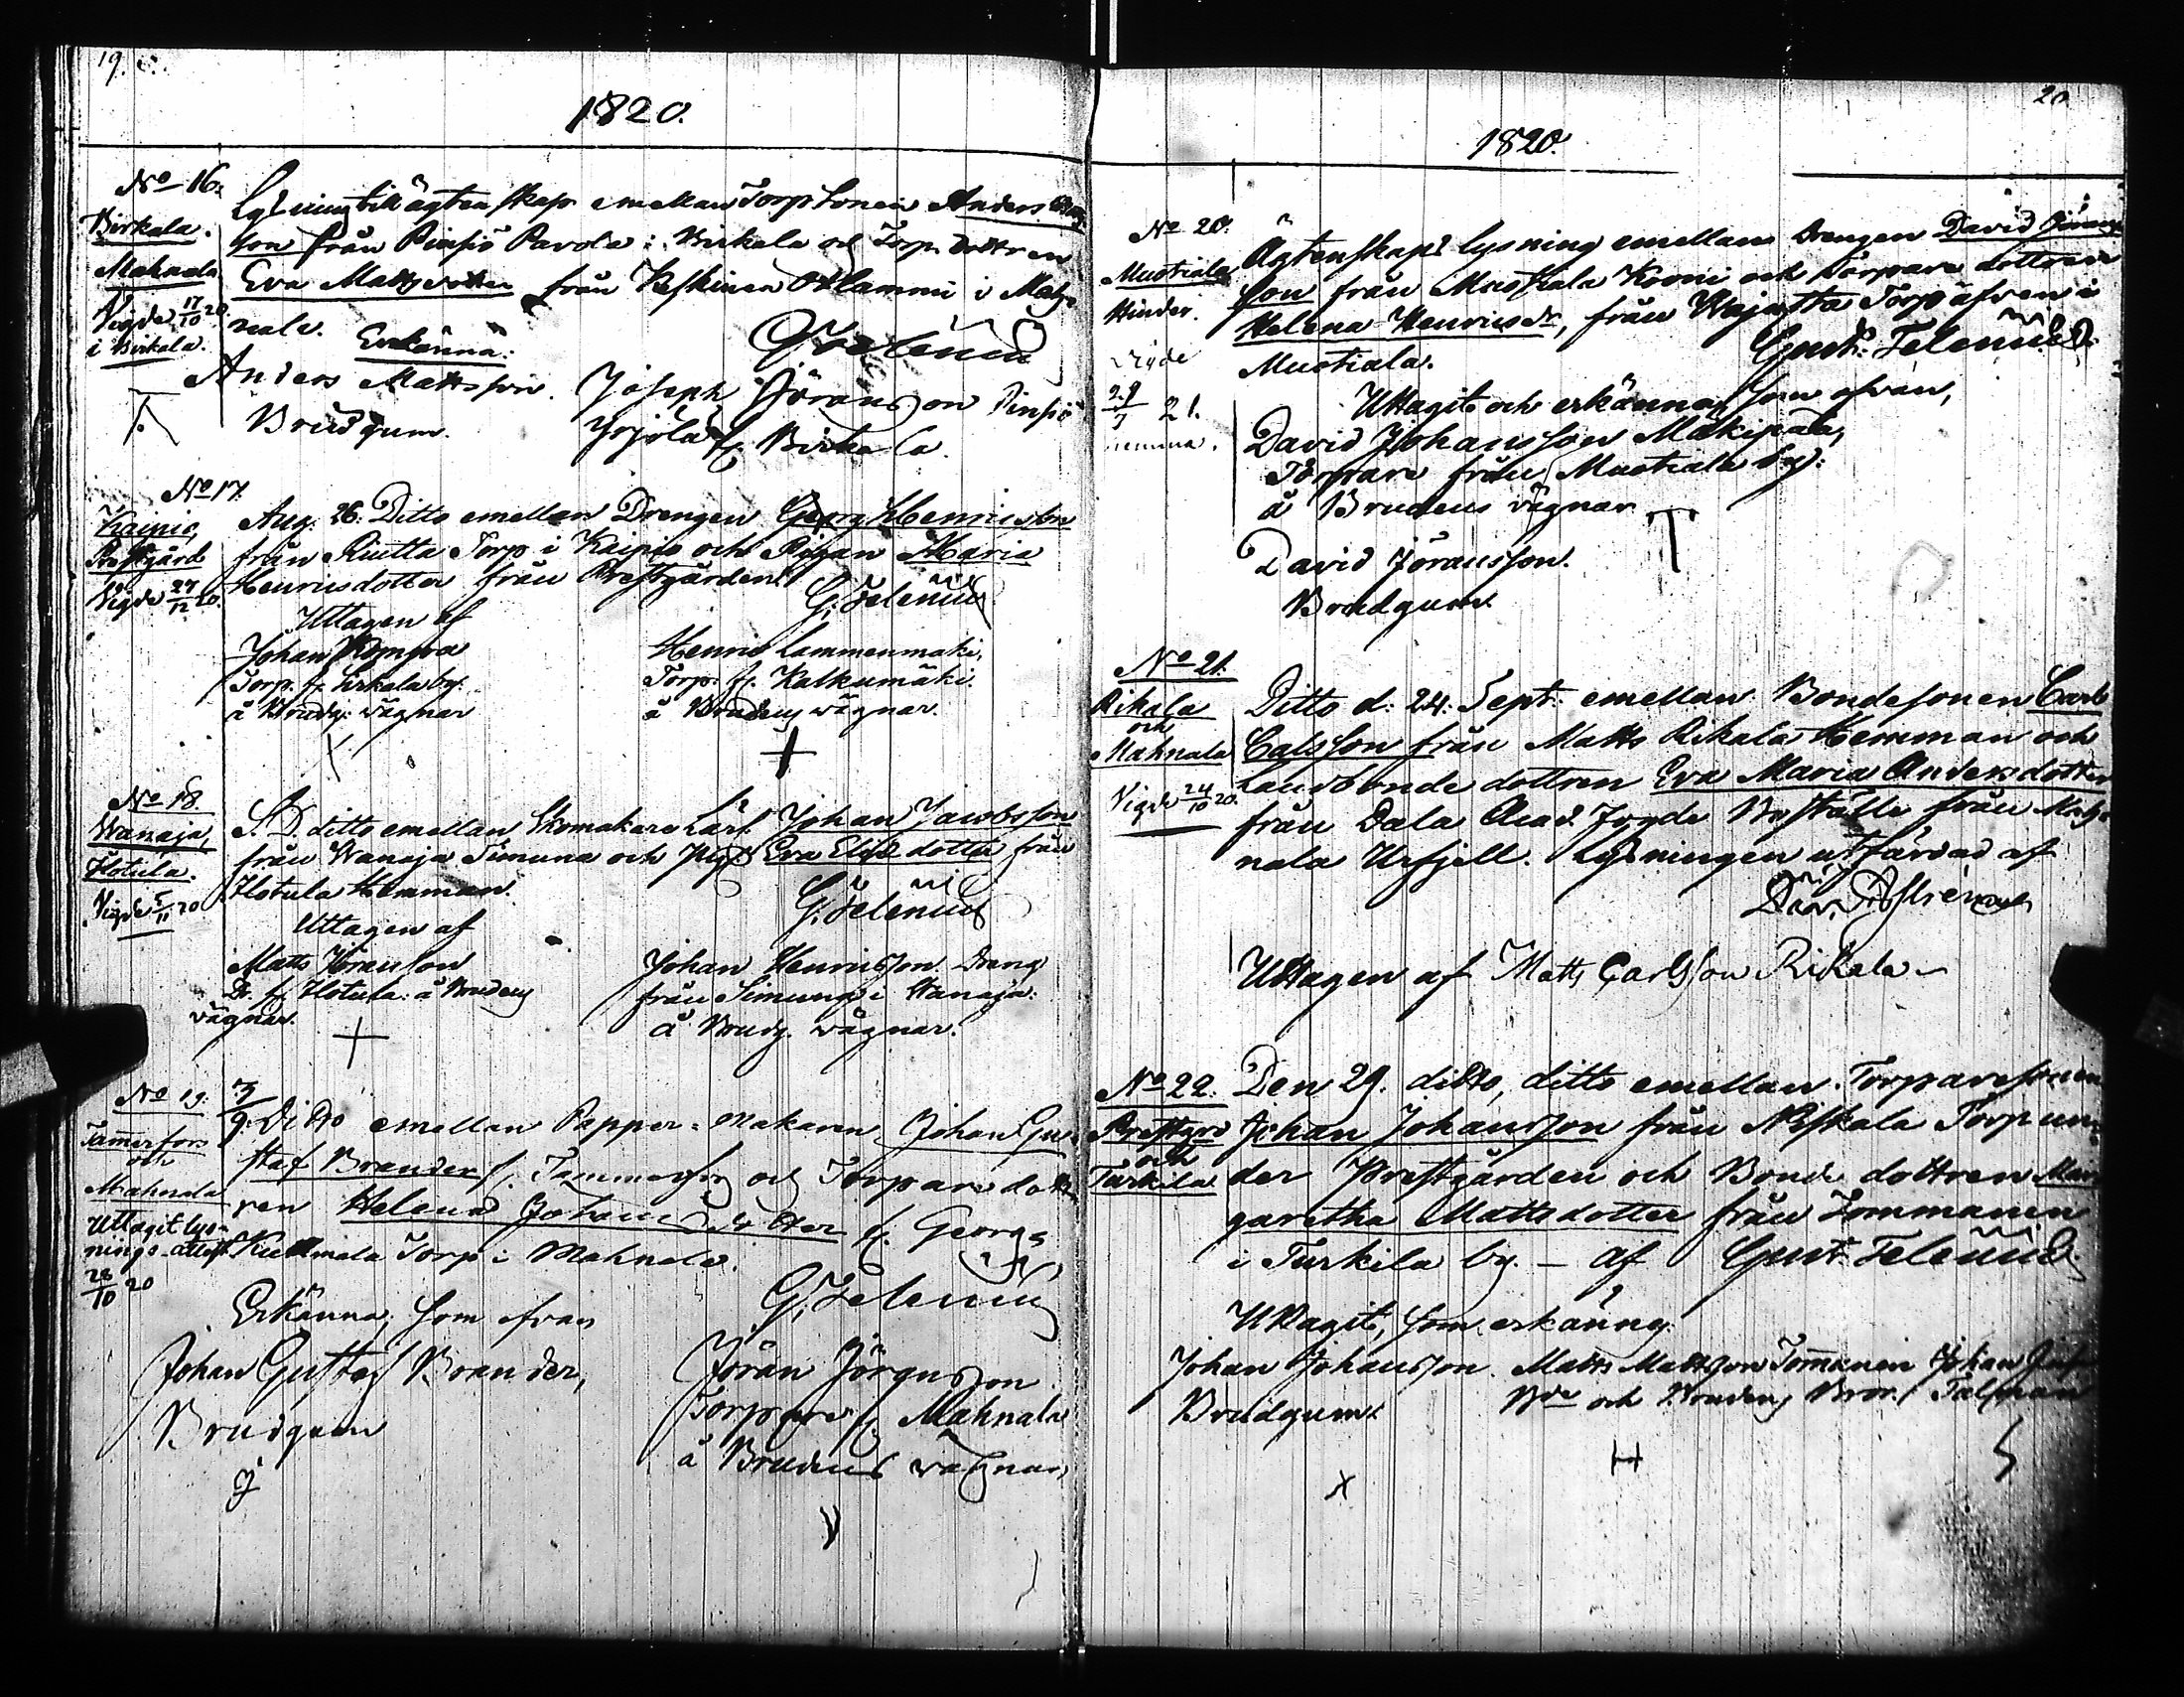 19.
1820.
No 16.
Birkala.
Mahnala
Vigde 17/10 20.
i Birkala.
Lysning till ägtenskap emellan Torpsonen Anders
son från Pinsiö Pavola i Birkala och Torp. dottren
Eva Mattsdotter från Keskinen i Mah-
nala.
Erkänna:
Anders Mattsson.
Brudgum.
Joseph Göransson Pinsiö
Yrjölä fr. Birkala.
No 17.
Kaipio,
Prestgård
Vigde 27/12 20.
Aug. 26. Ditto emellan Drengen Georg Henricsson
från Riutta Torp i Kaipio och Pigan Maria
Henricsdotter från Prestgården.
G. Telenius
Uttagen af
Johan
Torp. fr. Sirkala by.
å Brudg. wägnar
Henric Lammenmäki,
Torp. fr. Kalkumäki.
å Brudens wägnar.
No 18.
Wanaja,
Hotula.
Vigde 5/11 20
S. D. ditto emellan Skomakare Lärl. Johan Jacobsson
från Wanaja Simuna och Pig. Eva Elis dotter från
Hotula Hemman.
G. Telenius
Uttagen af
Matts Göransson
Dr. fr. Hotula: å Brudens
wägnar.
Johan Henricsson Dreng
från Simuna i Wanaja:
å Brudg. wägnar.
No 19.
Tamerfors
och
Mahnala
Uttagit lys-
nings-attest
28/10 20
3/9. Ditto emellan Papper-makaren Johan Gu-
staf Brander fr. Tammerfors och Torpare dott-
ren Helena Johans dotter fr. Georgs
Torp i Mahnala.
G. Telenius
Erkänna, som ofvan
Johan Gustaf Brander,
Brudgum
Jöran Jöransson
Torppare fr. Mahnala
å Brudens wägnar,
20
1820.
No 20.
Mustiala
Hinder.
Vigde
29/7 21.
Ägtenskaps lysning emellan Drengen David Görans
son från Mustiala Komi och Torpare dottren
Helena Henricsdr., från Wajasta Torp äfven i
Mustiala.
Gust: Telenius.
Uttagit och erkänna, som ofvan,
David Johansson Mäkipää,
Torpare från Mustiala by:
å Brudens wägnar
David Jöransson.
Brudgum.
No 21.
Rikala
och
Mahnala
Vigde 24/10 20.
Ditto d: 24: Sept: emellan Bondesonen Carl
Calsson från Matts Rikala Hemman och
Landbonde dottren Eva Maria Andersdotter
från Dala Acad. Fogde Boställe från Mah-
nala Ursjell. Lysningen utfärdad af
Uttagen af Matts Carlsson Rikala
No 22.
Prestgrd
och
Turkila
Den 29. ditto, ditto emellan Torparesonen
Johan Johansson från Niskala Torp un-
der Prestgården och Bonde dottren Mar-
garetha Mattsdotter från Tommanen
i Turkila by. – af Gust. Telenius.
Uttagit, som erkännes.
Johan Johansson.
Brudgum.
Matts Mattsson Tommanen
Bde och Brudens Bror.
Johan
Talman